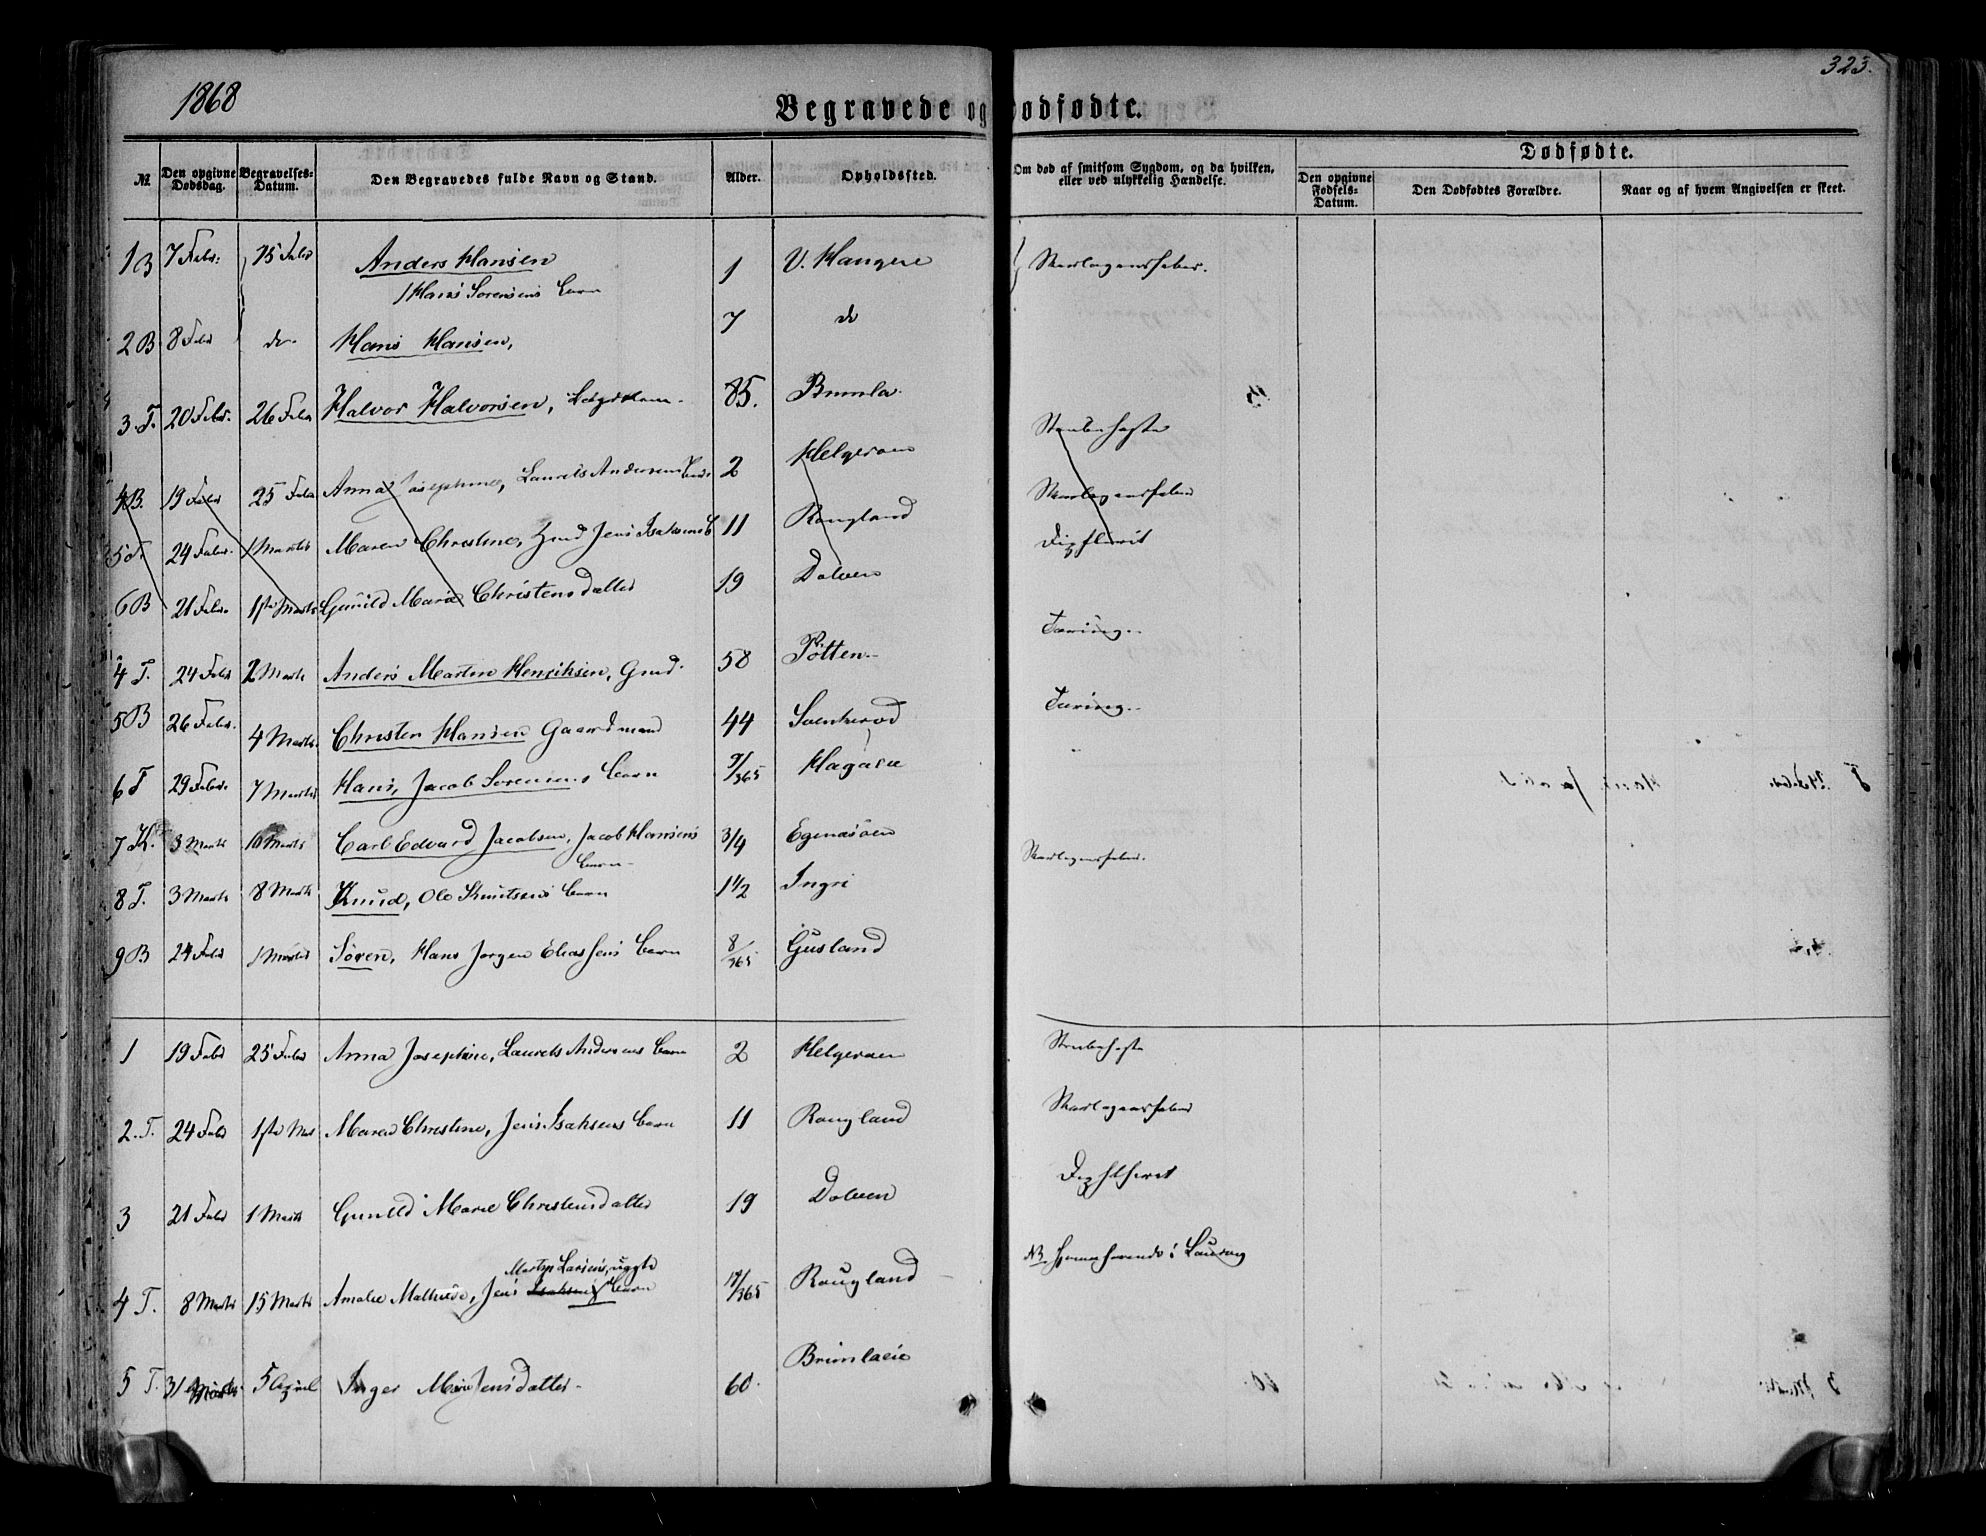 1868
323.
Begravede og Dødfødte.
№
Den opgivne Dødsdag.
Begravelses-Datum.
Den Begravedes fulde Navn og Stand.
Alder.
Opholdssted.
Om død af smitsom Sygdom, og da hvilken, eller ved ulykkelig Hændelse.
Dødfødte.
Den opgivne Fødsels-Datum.
Den Dødfødtes Forældre.
Naar og af hvem Angivelsen er skeet.
1 B 7 Febr. 15 Febr Anders Hansen 1 V. Haugene Skarlagensfeber.
Hans Sorensens barn
2 B 8 Febr do Hans Hansen, 7 do
3. T. 20 Febr. 26 Febr Halvor Halvorsen, Lægdslem 85. Brunla
4 B. 19 Febr 25 Febr Anna Josephine, Laurets Andersens barn 2 Helgeroen Strubehoste
5 T. 24 Febr. 1 Marts Maren Christine, Jens Isaksens 11 Raugland Skarlagensfeber
6 B 21 Febr. 1ste Marts Gunild Marie Christensdatter 19 Dolven Dipftherit
4 T. 24 Febr 2 Marts Anders Martin Henriksen, Gmd. 58 Pötten Tæring
5 B 26 Febr. 4 Marts. Christen Hansen Gaardmand 44 Svenkerød Tæring
6 T 29 Febr. 7 Marts Hans, Jacob Sorensens barn 9/365 Hagane
7 K. 3 Marts 10 Marts Carl Edvard Jacobsen, Jacob Hansens barn 3/4 Egenæsöen
8 T. 3 Marts 8 Marts Knud, Ole Knutsens barn 1 1/2 Ingri Skarlagensfeber.
9 B 24 Febr 1 Marts Sören, Hans Jorgen Eliassens barn 8/365 Gusland
1 19 Febr 25 Febr Anna Josephine, Laurets Andersens barn 2 Helgeroen Strubehoste
2. T. 24 Febr 1ste Mar Maren Christine, Jens Isaksens barn 11 Raugland Skarlagensfeber
3 21 Febr 1 Marts Gunild Marie Christensdatter 19 Dolven Dipftherit
Martyn Larsens, uægte
4 T. 8 Marts 15 Marts Amalie Mathilde, Jens Isaksens barn 19/365 Raugland NB. Hjemmehørende i Laurvig
5 T. 31 Marts 5 April Inger Marie Jensdatter 60. Brunlaeie